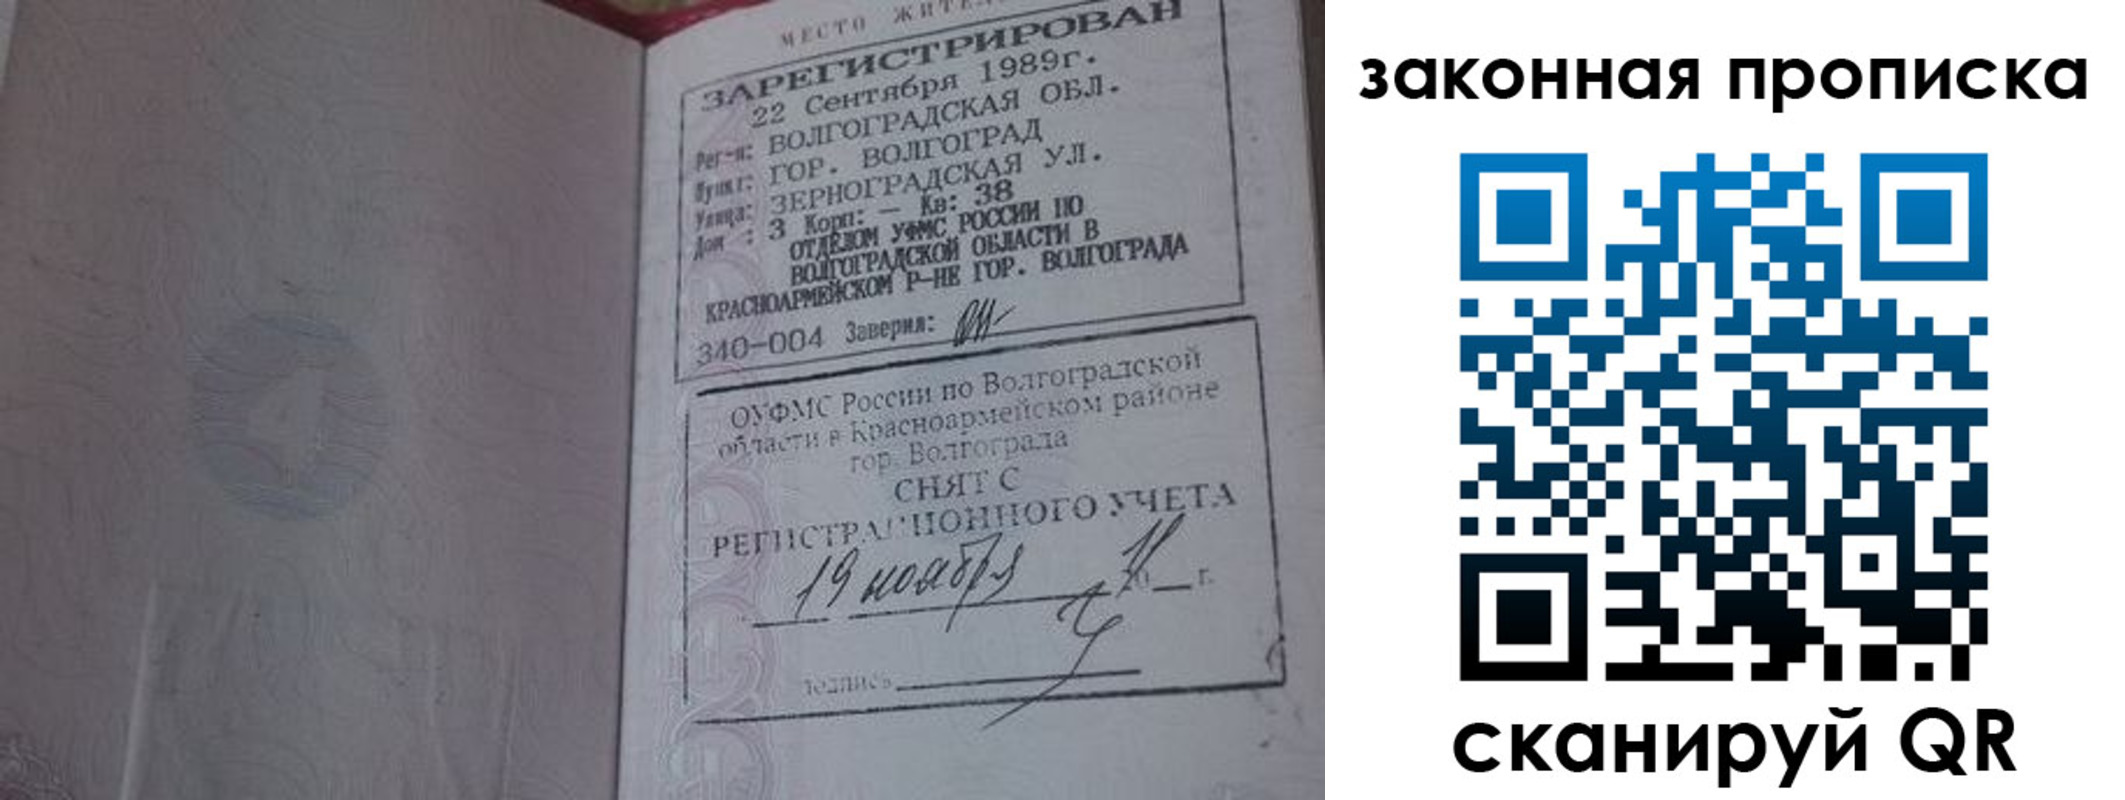 МЕСТО ЖИТЕЛ
ЗАРЕГИСТРИРОВАН
22 Сентября 1989г.
Рег-н: ВОЛГОГРАДСКАЯ ОБЛ.
Пункт: ГОР. ВОЛГОГРАД
Улица: ЗЕРНОГРАДСКАЯ УЛ.
Дом : 3 Корп: — Кв: 38
ОТДЕЛОМ УФМС РОССИИ ПО
ВОЛГОГРАДСКОЙ ОБЛАСТИ В
КРАСНОАРМЕЙСКОМ Р-НЕ ГОР. ВОЛГОГРАДА
340-004 Заверил:
ОУФМС России по Волгоградской
области в Красноармейском районе
гор. Волгограда
СНЯТ С
РЕГИСТРАЦИОННОГО УЧЕТА
19 ноября 20 г.
подпись
законная прописка
сканируй QR